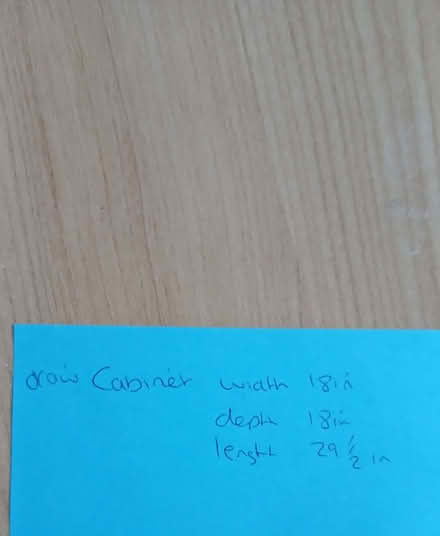 draw Cabinet width 18in
depth 18in
lenght 29 1/2 in